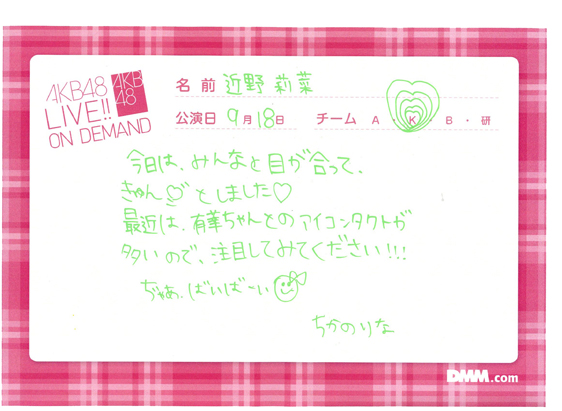 AKB48
LIVE!!
ON DEMAND
AKB
48
名前 近野莉菜
公演日 9月18日 チーム A・K・B・研
今日は、みんなと目が合って、
きゅん♡としました♡
最近は、有華ちゃんとのアイコンタクトが
多いので、注目してみてください!!!
ぢゃあ、ばいばーい
ちかのりな
DMM.com